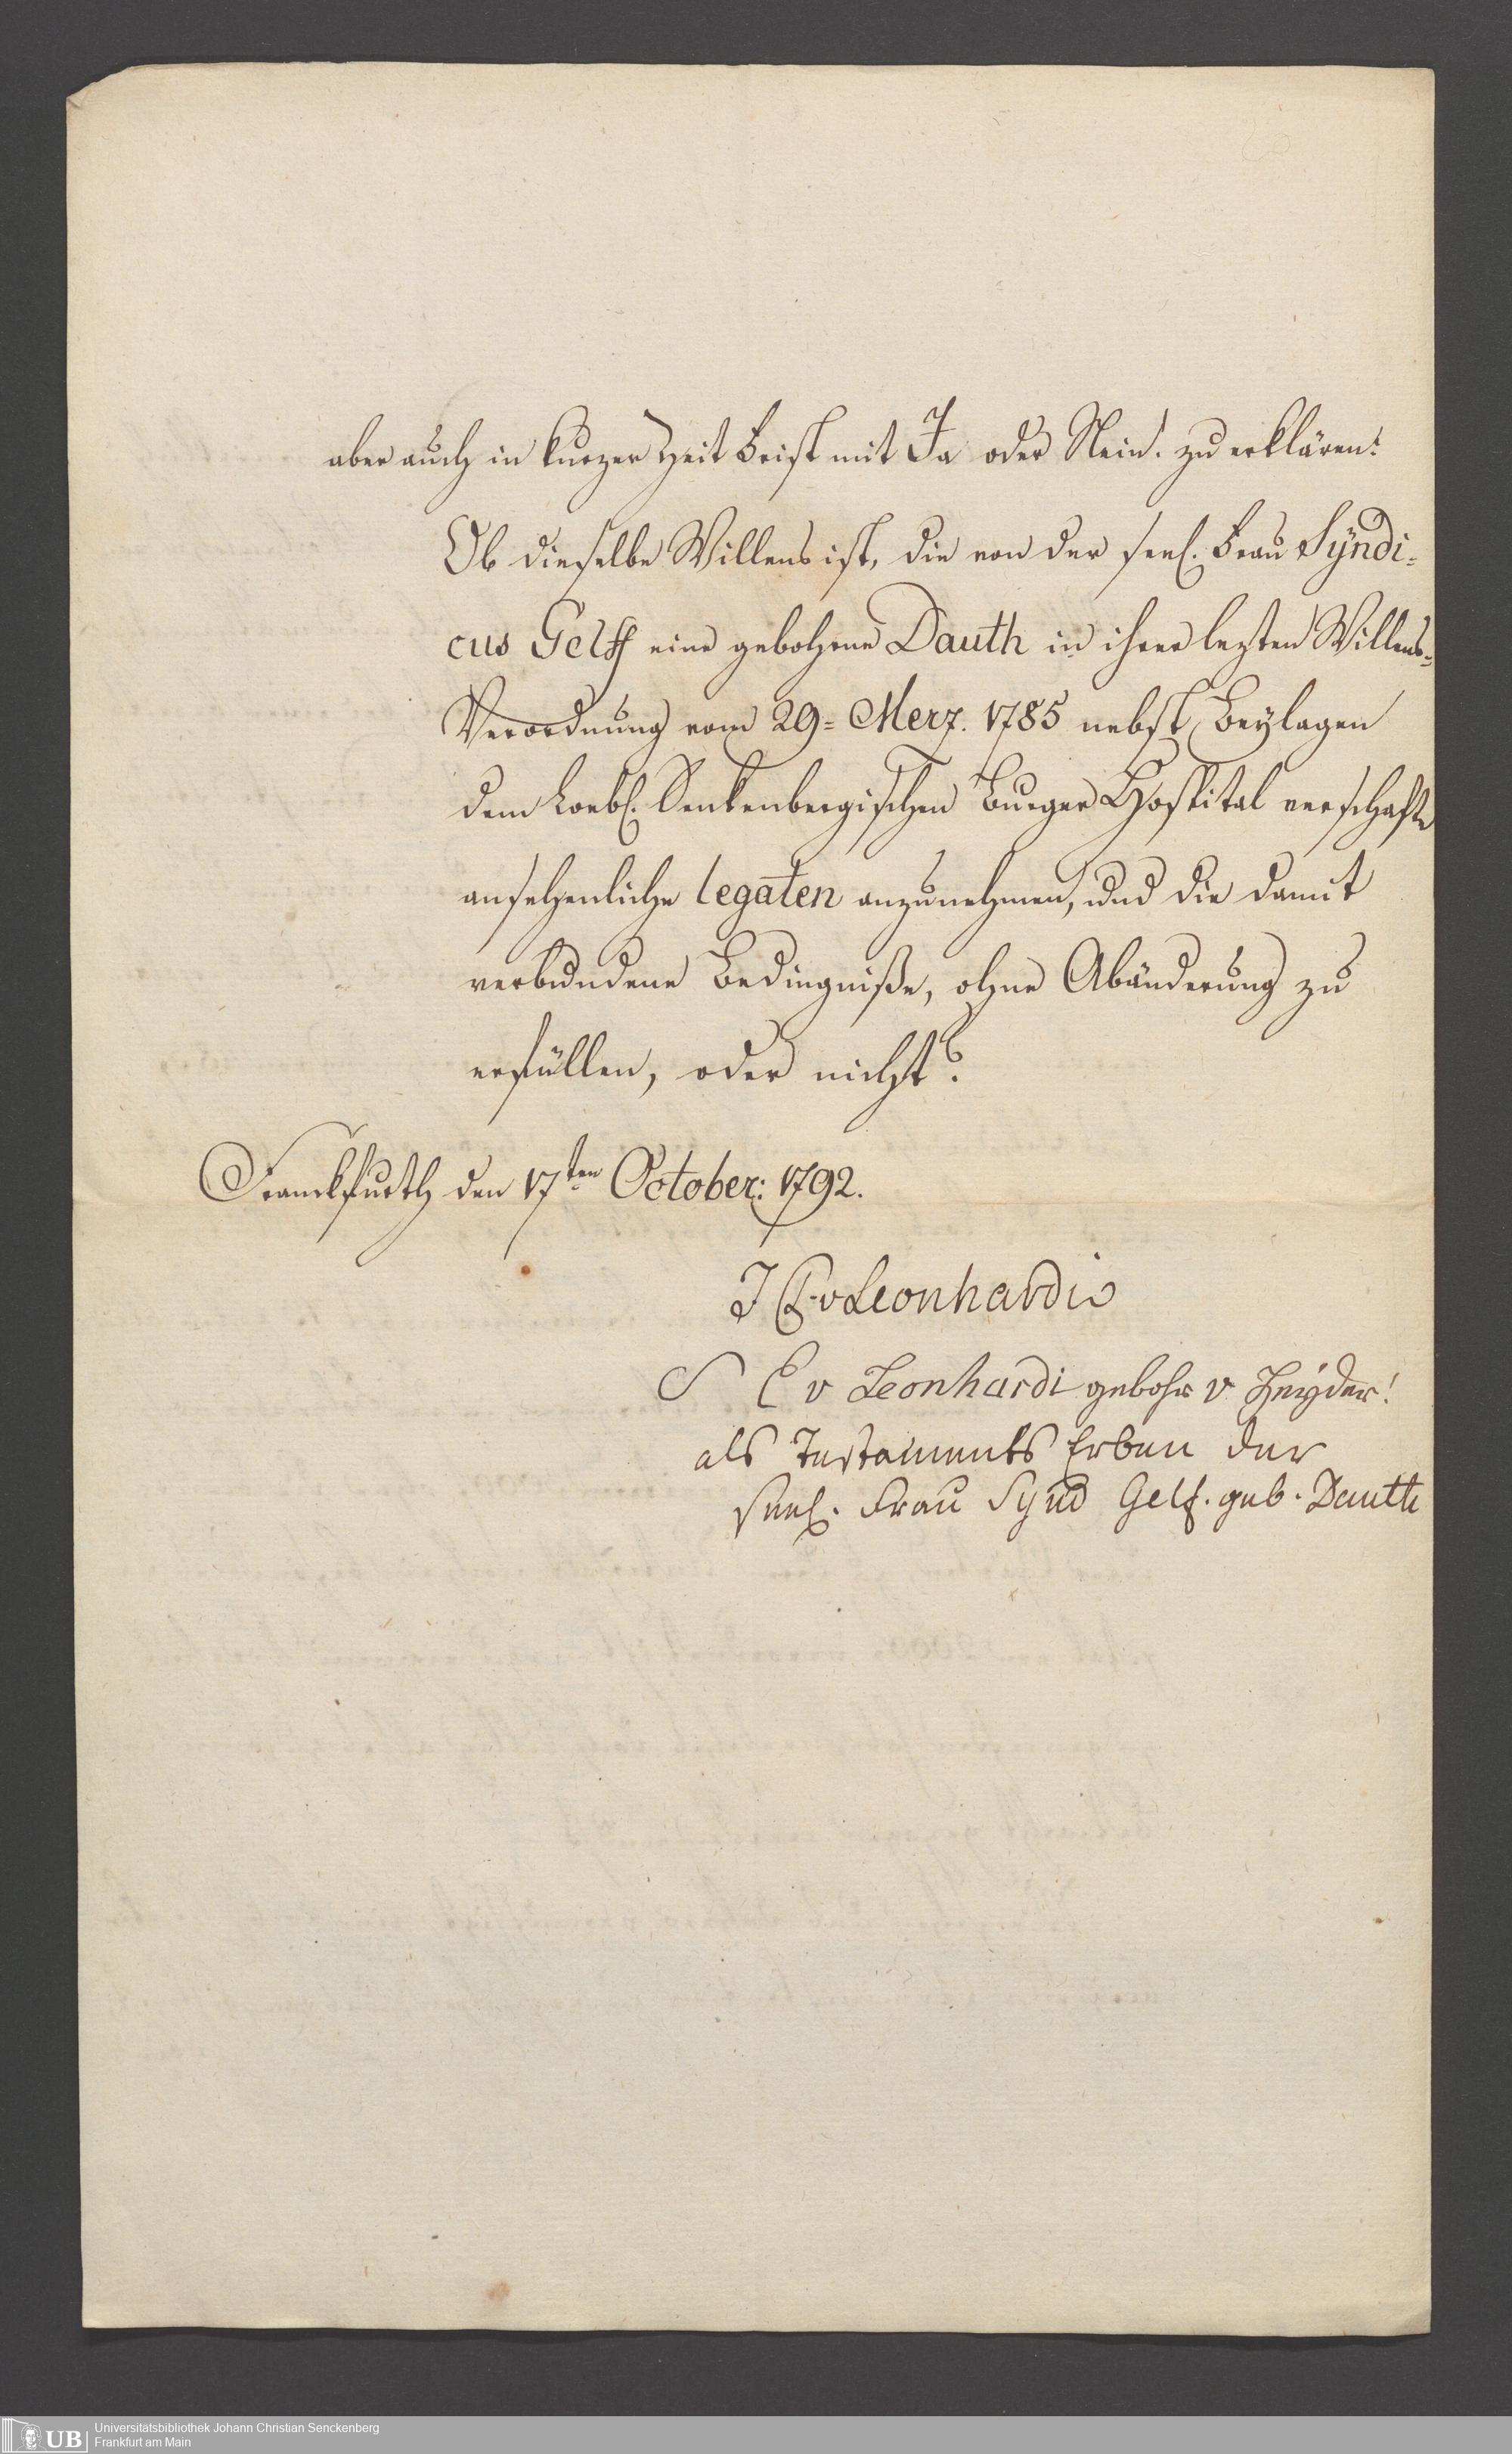 aber auch in kurzer Zeit Frist mit Ja oder Nein. zu erklären:
Ob dieselbe Willens ist, die von der seel. Frau Syndi-
cus Gelff eine gebohrne Dauth in ihrer lezten Willens-
Verordnung vom 29= Merz. 1785 nebst Beylagen
dem Loebl. Senkenbergischen Burger Hospital verschafte
ansehenliche legaten anzunehmen, und die damit
verbundene Bedingniße, ohne Abänderung zu
erfüllen, oder nicht?
Franckfurth den 17ten October: 1792.
J P v Leonhardi
S E v Leonhardi gebohr v Heyder!
als Testaments Erben der
seel. Frau Synd Gelf. geb. Dauth
UB
Universitätsbibliothek Johann Christian Senckenberg
Frankfurt am Main